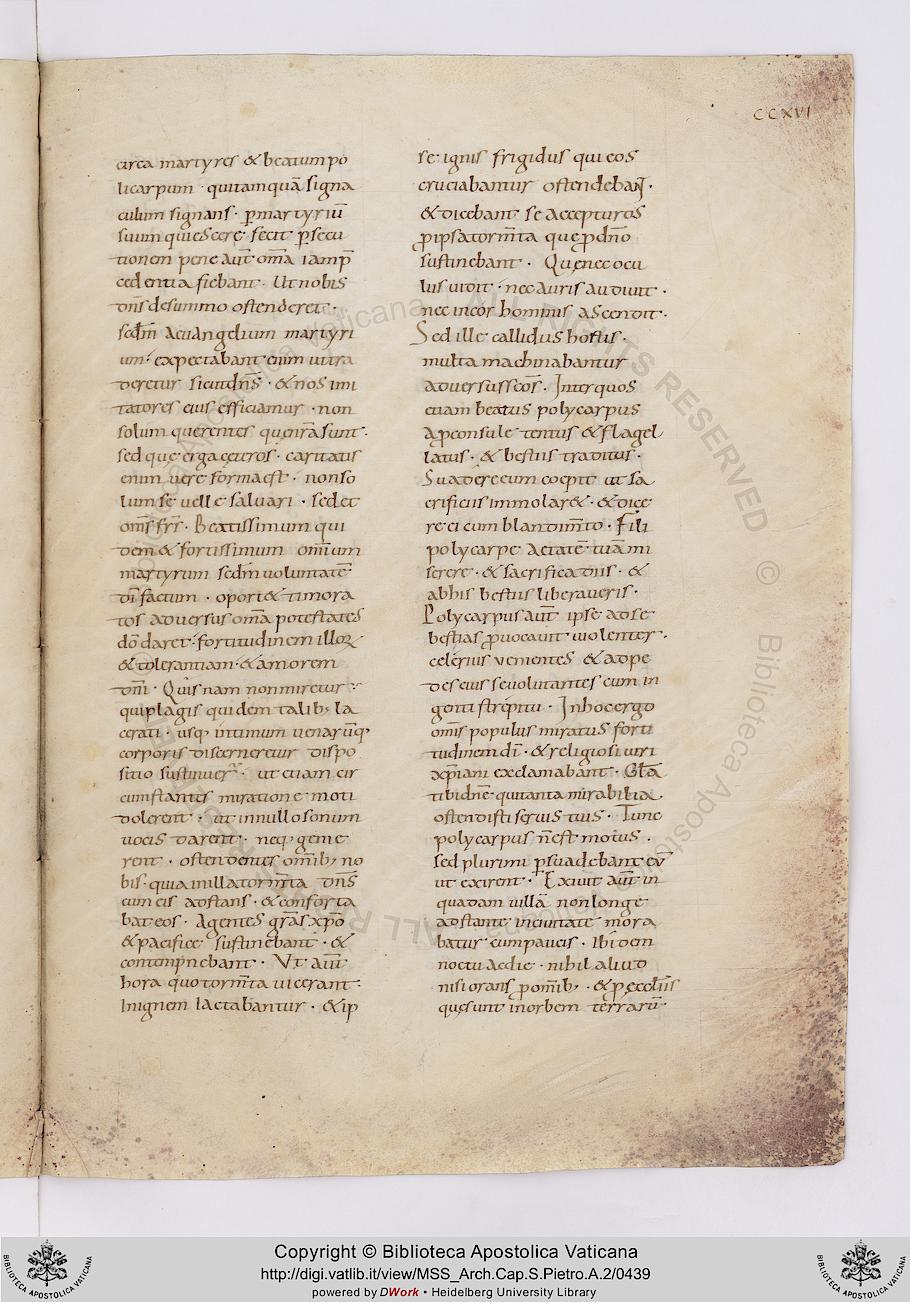 CCXVI
circa martyres & beatum po
licarpum · qui tamquā signa
culum signans · p̱ martyriū
suum quiescere fecit p̱secu
tionem pene aut̄ om̄a iam p̄
cedentia fiebant · Ut nobis
dn̄s desummo ostenderet ·
sedm̄ aeuangelium martyri
um · expectabant enim ut tra
deretur sicut dn̄s · & nos imi
tatores eius efficiamur · non
solum querentes que nr̄a sunt ·
sed que erga ceteros · caritatis
enim uere forma est · non so
lum se uelle saluari · sed et
om̄s fr̄s · Beatissimum qui
dem & fortissimum omnium
martyrum sedm̄ uoluntatē
dī factum · oport& timora
tos aduersus om̄a potestates
dō daret · fortitudinem illoꝝ
& tolerantiam · & amorem
dn̄i · Quis nam non miretur
qui plagis quidem talib; la
cerati · usq; intimum uenarūq;
corporis discerneretur dispo
sitio sustinuer̄ · ut etiam cir
cumstantes miratione moti
dolerent · ut in nullo sonum
uocis darent · neq; geme
rent · ostendentes om̄ib; no
bis · quia in illa torm̄ta dn̄s
cum eis adstans · & conforta
bat eos · Agentes gr̄as xp̄o
& pacifice sustinebant · &
contempnebant · Ut aut̄
hora quo torm̄ta uicerant ·
In ignem iactabantur · & ip
se ignis frigidus qui eos
cruciabantur ostendebaɴᴛ ·
& dicebant se accepturos
ꝓ ipsa torm̄ta que ꝓ dn̄o
sustinebant · Que nec ocu
lus uidit · nec auris audiuit ·
nec in cor hominis ascendit ·
Sed ille callidus hostis ·
multa machinabantur
aduersus eos · Inter quos
etiam beatus polycarpus
a ꝓconsule tentus & flagel
latus · & bestiis traditus ·
Suadere eum coepit ut sa
crificiis immolar& · & dice
re ei cum blandim̄to · Fili
polycarpe aetatē tuā mi
serere · & sacrifica diis · &
abhis bestiis liberaueris ·
Polycarpus aut̄ ipse ad se
bestias ꝓuocauit uiolenter ·
celerius uenientes & ad pe
des eius se uolutantes cum in
genti strepitu · In hoc ergo
om̄is populus miratus forti
tudinem dī · & religiosi uiri
xp̄iani exclamabant · Gl̄a
tibi dn̄e qui tanta mirabilia
ostendisti seruis tuis · Tunc
polycarpus n̄ est motus ·
sed plurimi p̱suadebant eū
ut exirent · Exiuit aut̄ in
quadam uillā non longe
adstante in ciuitate mora
batur cum paucis · Ibidem
noctu ac die · nihil aliud
nisi orans ꝓ om̄ib; · & ꝓ ecclīis
que sunt in orbem terrarū ·
Copyright © Biblioteca Apostolica Vaticana
http://digi.vatlib.it/view/MSS_Arch.Cap.S.Pietro.A.2/0439
powered by DWork • Heidelberg University Library